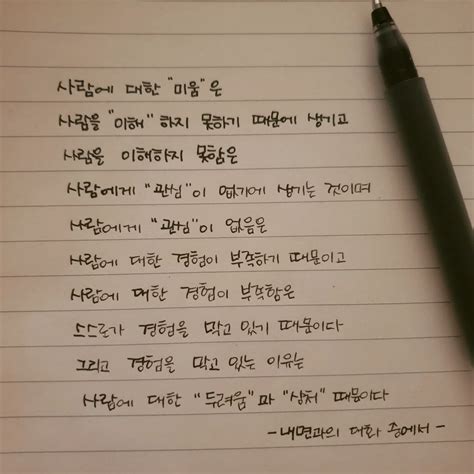 사람에 대한 "미움"은
사람을 "이해"하지 못하기 때문에 생기고
사람을 이해하지 못함은
사람에게 "관심"이 없기에 생기는 것이며
사람에게 "관심"이 없음은
사람에 대한 경험이 부족하기 때문이고
사람에 대한 경험이 부족함은
스스로가 경험을 막고 있기 때문이다
그리고 경험을 막고 있는 이유는
사람에 대한 "두려움"과 "상처" 때문이다
-내면과의 대화 중에서-